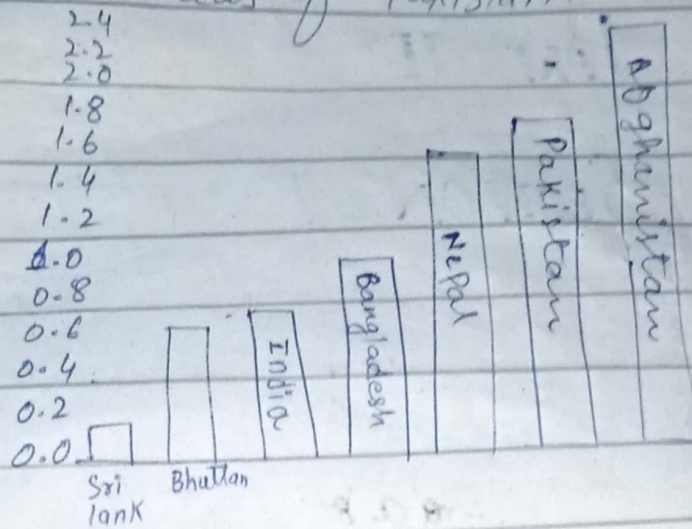 2.4
2.2
2.0
1.8
1.6
1.4
1.2
1.0
0.8
0.6
0.4
0.2
0.0
Sri
lank
Bhuttan
India
Bangladesh
Nepal
Pakistan
Afghanistan